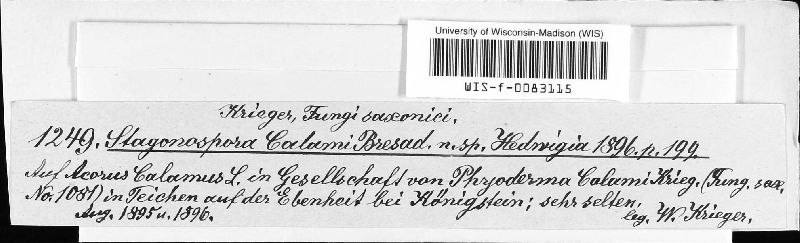 University of Wisconsin-Madison (WIS)
WIS-f-0083115
Krieger, Fungi saxonici.
1249. Stagonospora Calami Bresad. n. sp. Hedwigia 1896. p. 199.
Auf Acorus Calamus L. in Gesellschaft von Phyoderma Calami Krieg. (Fung. sax.
No. 1081) in Teichen auf der Ebenheit bei Königstein; sehr selten.
Aug. 1895 u. 1896.
leg. W. Krieger.